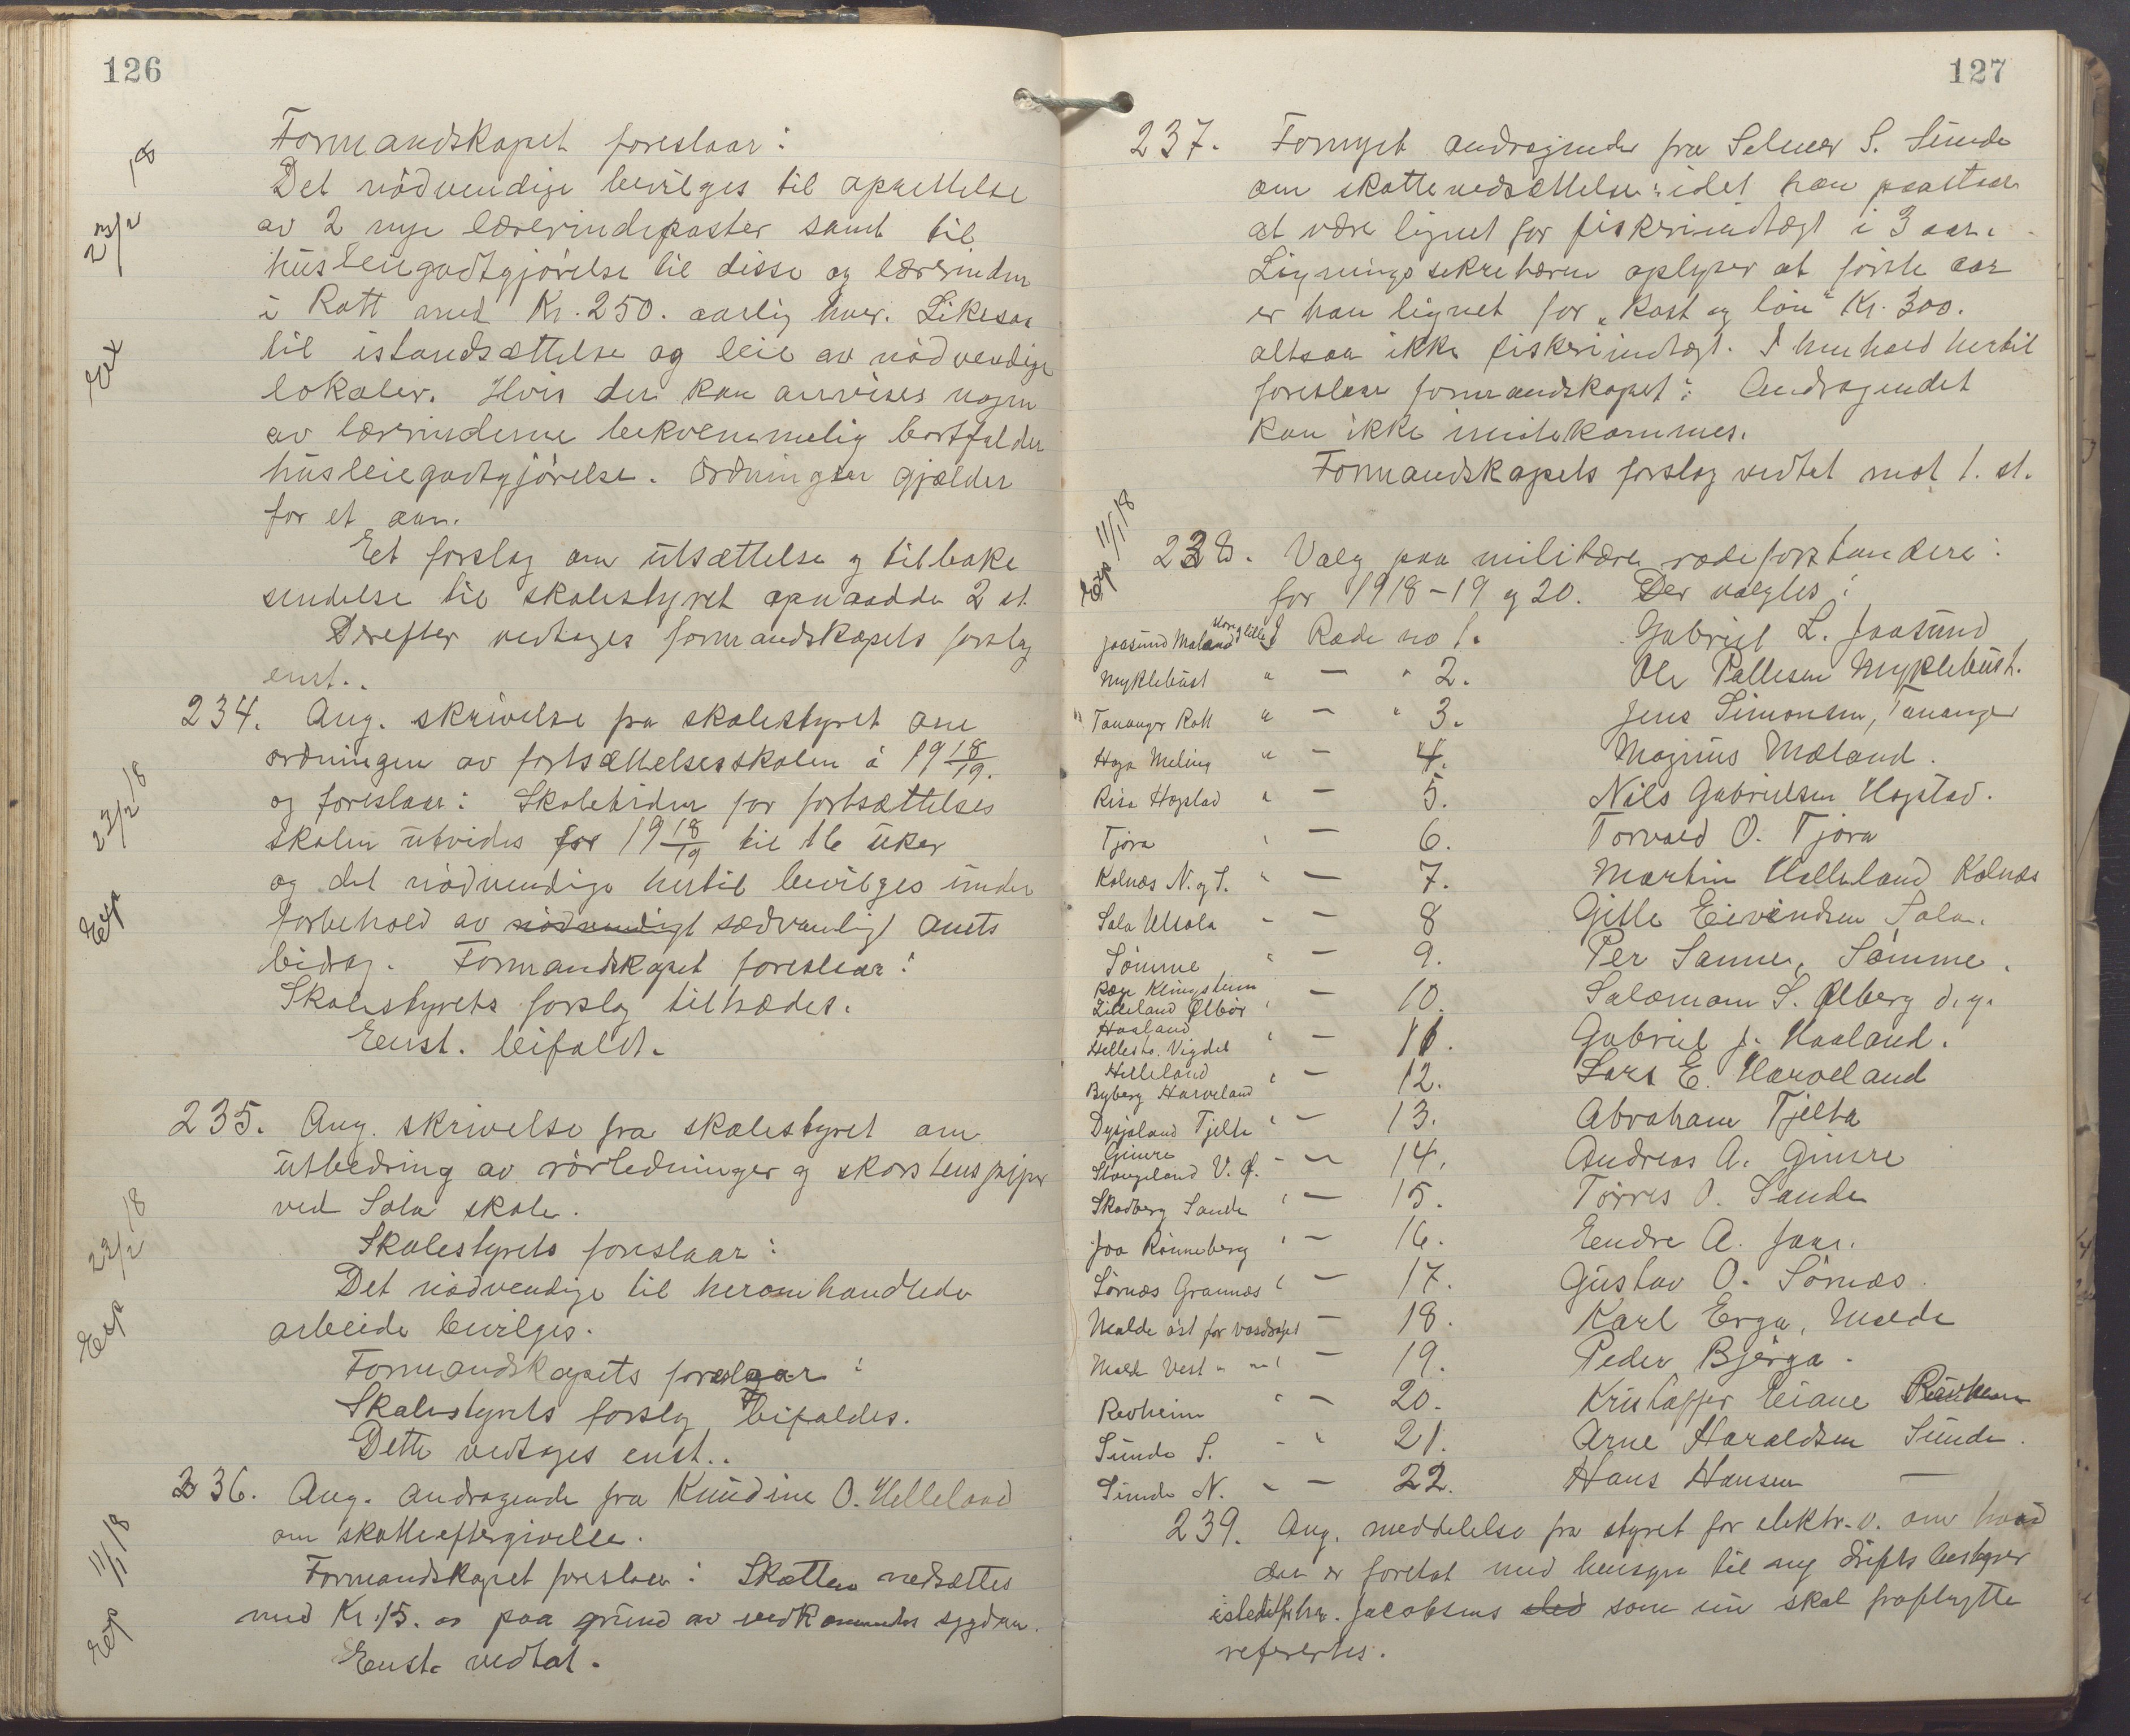 126
Formandskapet foreslaar:
Det nödvendige bevilges til oprettelse
av 2 nye lærerindeposter samt til
husleiegodtgjörelse til disse og lærerinden
i Rott med Kr. 250. aarlig hver. Likesaa
til istandsættelse og leie av nödvendige
lokaler. Hvis der kan anvises nogen
av lærerinderne bekvemmelig bortfalder
husleiegodtgjörelse. Ordningen gjælder
for et aar.
Eet forslag om utsættelse og tilbake
sendelse til skolestyret opnaadde 2 st.
Derefter vedtoges formandskapets forslag
enst..
23/2 18
Ext
234. Ang. skrivelse fra skolestyret om
ordningen av fortsættelsesskolen i 19 18/19.
og foreslaar: Skoletiden for fortsættelses
skolen utvides for 19 18/19 til 16 uker
og det nödvendige hertil bevilges under
forbehold av nödvendigt sædvanligt amts
bidrag. Formandskapet foreslaar:
Skolestyrets forslag tiltrædes.
Eenst. bifaldt.
23/2 18
Exp
235. Ang. skrivelse fra skolestyret om
utbedring av rörledninger og skorstenspiper
ved Sola skole.
Skolestyrets foreslaar:
Det nödvendige til heromhandlede
arbeide bevilges.
Formandskapets foreslaar:
Skolestyrets forslag bifaldes.
Dette vedtoges enst..
23/2 18
Exp
236. Ang. andragende fra Knudine O. Helleland
om skatteeftergivelse.
Formandskapet foreslaar: Skatten nedsættes
med Kr. 15. oo paa grund av vedkommendes sygdom.
Eenst. vedtat.
11/1 18
Exp
127
237. Fornyet andragende fra Selmer S. Sunde
om skattenedsættelse: idet han paastaar
at være lignet for fiskeriindtægt i 3 aar.
Ligningssekretæren oplyser at förste aar
er han lignet for „Kost og lön" Kr. 300.
altsaa ikke fiskeriindtægt. I henhold hertil
foreslaar formandskapet: Andragendet
kan ikke imötekommes.
Formandskapets forslag vedtat mot 1. st.
Exp 11/1 18
238. Valg paa militære rodeforstandere:
for 1918-19 og 20. Der valgtes:
Jaasund Maland store og lille Rode no 1. Gabriel L. Jaasund
Myklebust " — " 2. Ole Pallesen Myklebust.
Tananger Rott " — " 3. Jens Simonsen, Tananger
Haga Meling " — 4. Magnus Mæland.
Risa Hogstad " — 5. Nils Gabrielsen Hogstad.
Tjora " — 6. Torvald O. Tjora
Kolnæs N. og S. " — 7. Martin Helleland Kolnæs
Sola Utsola " — 8 Gitle Eivindsen Sola.
Sömme " — 9. Per Sömme, Sömme.
Rege Klingsheim
Lilleland Ølbör " — 10. Salamom S. Ølberg d.y.
Haaland
Hellestö Vigdel " — 11. Gabriel J. Haaland.
Helleland
Byberg Harveland " — 12. Lars E. Harveland
Dysjaland Tjelta " — 13. Abraham Tjelta
Gimre
Stangeland V. Ø. " — 14. Andreas A. Gimre
Skadberg Sande " — 15. Törres O. Sande
Joa Rönneberg " — 16. Eendre A. Joa.
Sörnæs Grannæs " — 17. Gustav O. Sörnæs.
Malde öst for vasdraget — 18. Karl Erga, Malde
Malde Vest " " " — 19. Peder Bjerga.
Revheim " — 20. Kristoffer Eiane Revheim
Sunde S. " " 21. Arne Haraldsen Sunde.
Sunde N. " — 22. Hans Hansen —
239. Ang. meddelelse fra styret for elektr. v. om hvad
der er foretat med hensyn til ny driftsbestyrer
istedetfor hr. Jacobsens sted som nu skal fraflytte
refereretes.